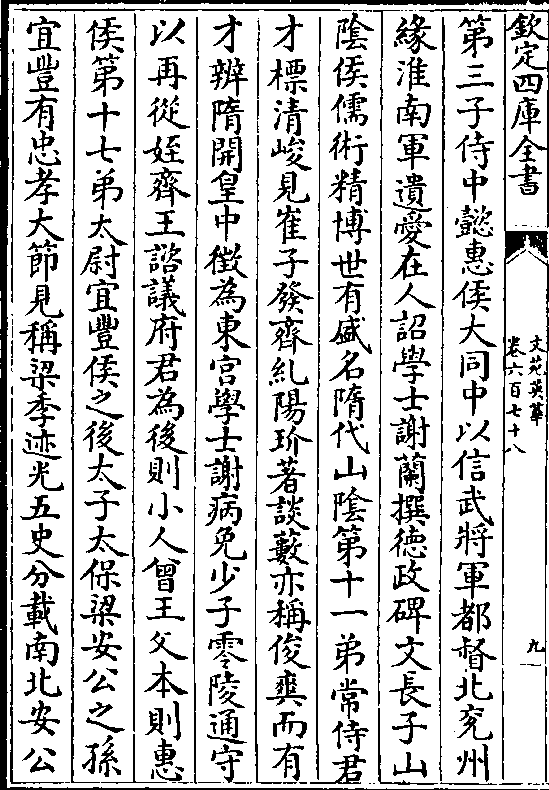 欽定四庫全書
文苑英華
卷六百七十八
九
第三子侍中懿惠侯大同中以信武將軍都督北兖州
緣淮南軍遺愛在人詔學士謝蘭撰徳政碑文長子山
陰侯儒術精博世有盛名隋代山陰第十一弟常侍君
才標清峻見崔子發齊紀陽玠著談藪亦稱俊爽而有
才辨隋開皇中徴為東宫學士謝病免少子零陵通守
以再從姪齊王諮議府君為後則小人曾王父本則惠
侯第十七弟太尉宜豐侯之後太子太保梁安公之孫
宜豐有忠孝大節見稱梁季迹光五史分載南北安公